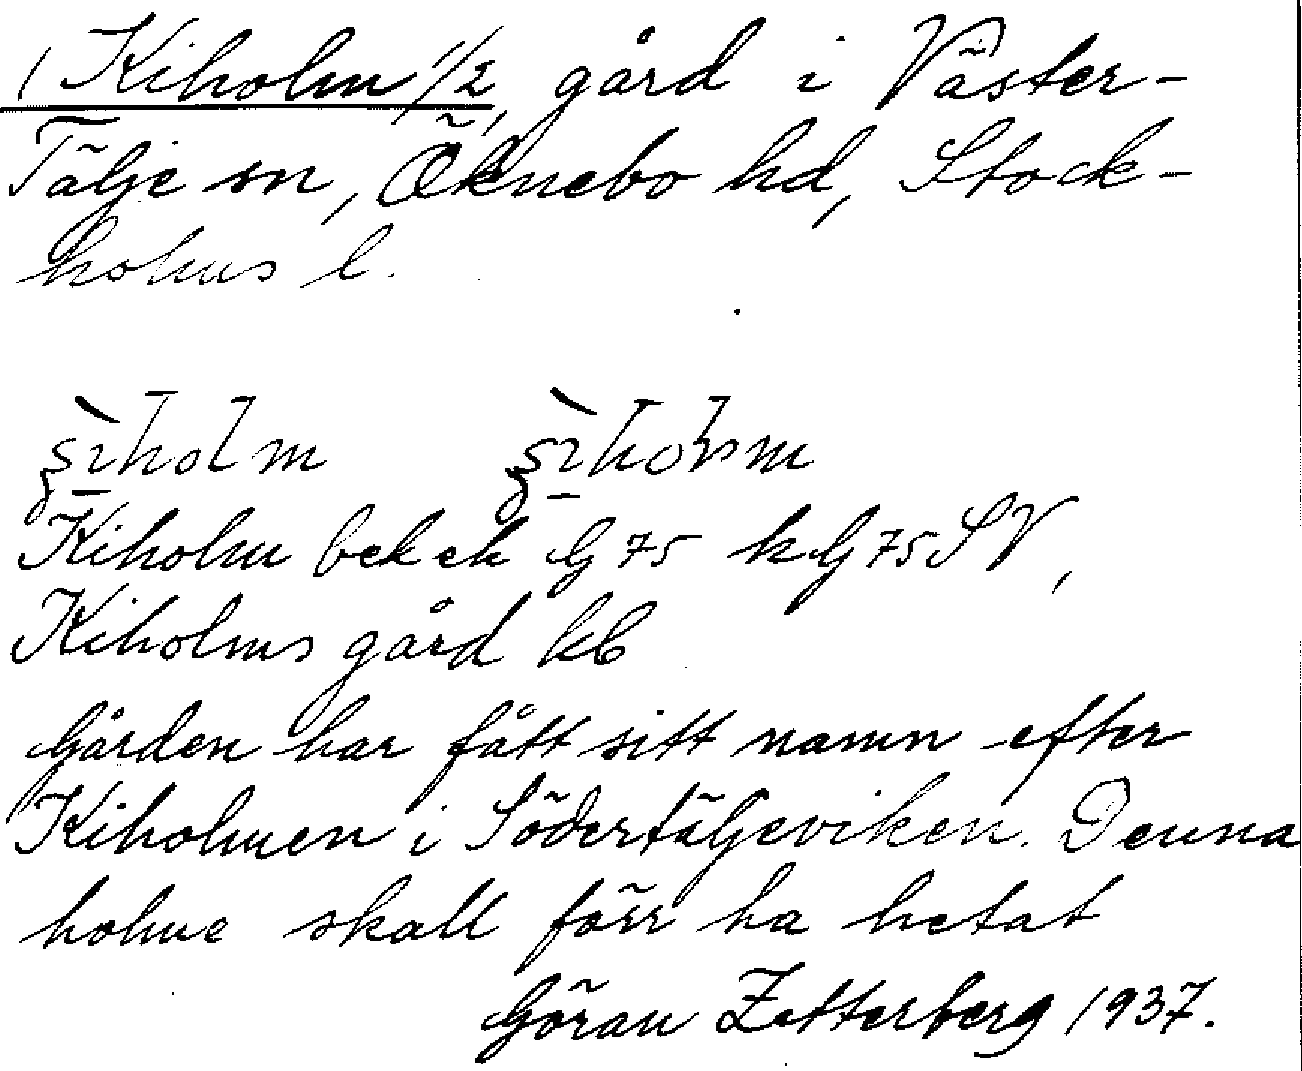 1 Kiholm 1/2, gård i Väster-
Tälje sn, Öknebo hd, Stock-
holms l.
Kiholm bek ek G 75 k G 75 SV,
Kiholms gård kb
Gården har fått sitt namn efter
Kiholmen i Södertäljeviken. Denna
holme skall förr ha hetat
Göran Zetterberg 1937.